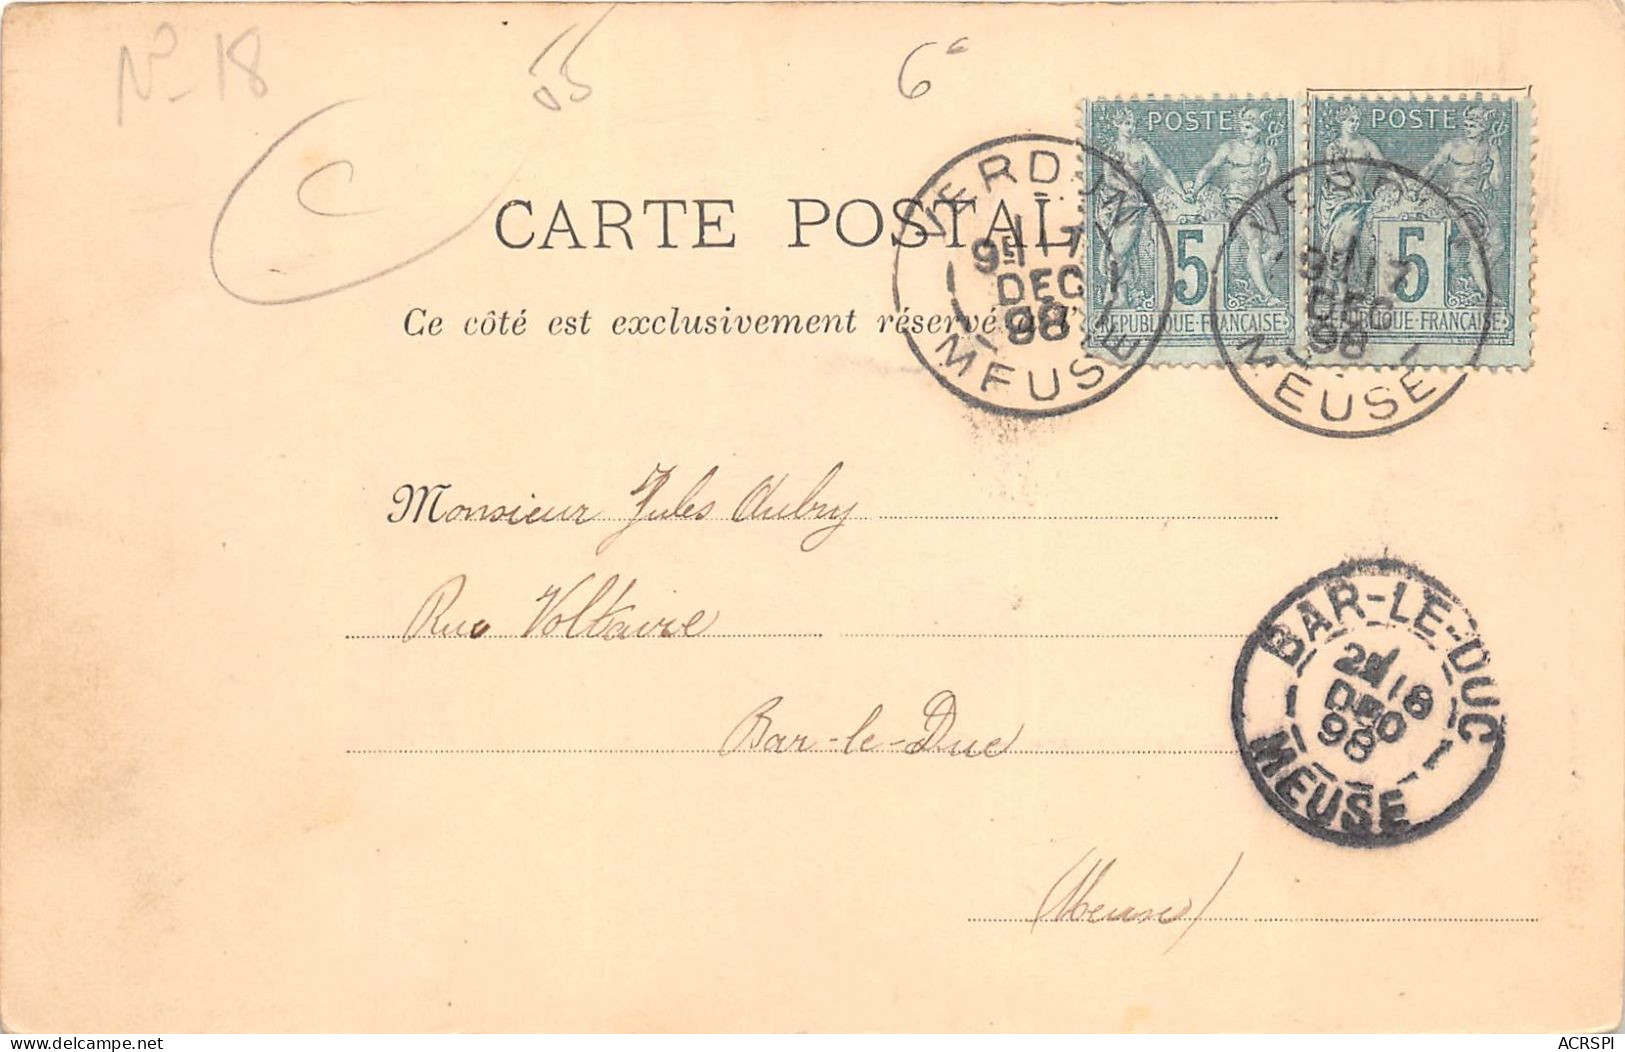 No 18
55
6c
C
POSTE
POSTE
CARTE POSTAL
VERDUN
9H 17
DEC
98
MEUSE
9 17
DEC
98
MEUSE
5
5
REPUBLIQUE FRANÇAISE
FRANÇAISE
Ce côté est exclusivement réservé à l'
Monsieur Jules Aubry
Rue Voltaire
BAR-LE-DUC
18
98
MEUSE
Bar-le-Duc
(Meuse)
delcampe.net
ACRSPI